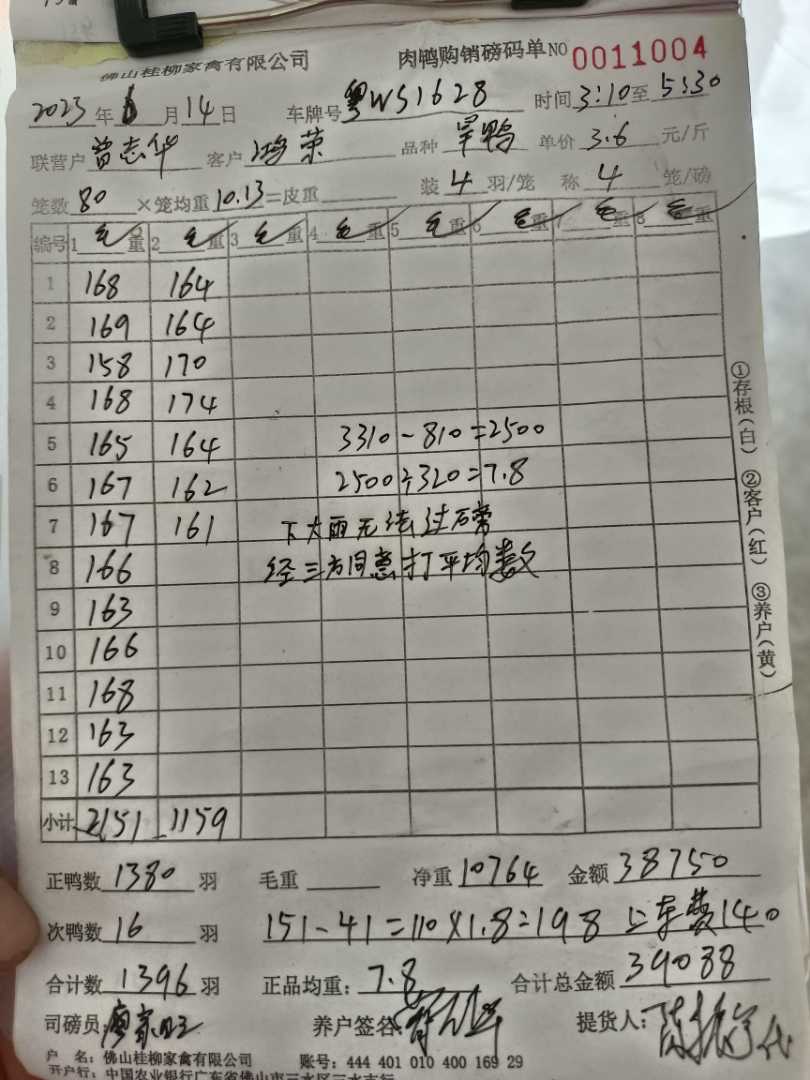 佛山桂柳家禽有限公司 肉鸭购销磅码单NO 0011004
2023年6月14日 车牌号粤WS1628 时间3:10至5:30
联营户曾志华 客户鸿荣 品种旱鸭 单价3.6元/斤
笼数80×笼均重10.13=皮重 装4羽/笼 称4笼/磅
编号 1毛重 2毛重 3毛重 4毛重 5毛重 6毛重 7毛重 8毛重
1 168 164
2 169 164
3 158 170
4 168 174
5 165 164 3310-810=2500
6 167 162 2500÷320=7.8
7 167 161 下大雨无法过石常
8 166 经三方同意打平均数
9 163
10 166
11 168
12 163
13 163
小计 2151 1159
①存根(白) ②客户(红) ③养户(黄)
正鸭数1380羽 毛重 净重10764 金额38750
次鸭数16羽 151-41=110×1.8=198 上车费140
合计数1396羽 正品均重:7.8 合计总金额39088
司磅员: 养户签名: 提货人:
户 名:佛山桂柳家禽有限公司 账号:444 401 010 400 169 29
开户行:中国农业银行广东省佛山市三水区三水支行